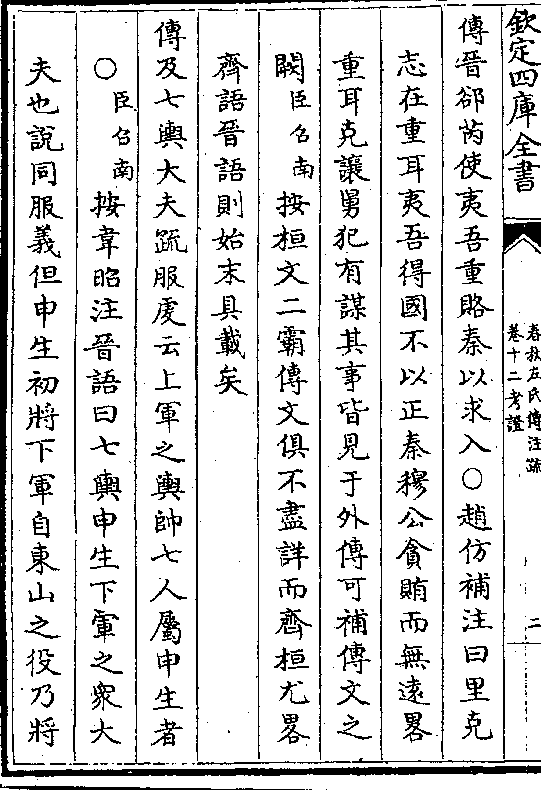 欽定四庫全書
春秋左氏傳注疏
卷十二考證
二
傳晉郤芮使夷吾重賂秦以求入○趙仿補注曰里克
志在重耳夷吾得國不以正秦穆公貪賄而無遠畧
重耳克讓舅犯有謀其事皆見于外傳可補傳文之
闕臣召南按桓文二霸傳文俱不盡詳而齊桓尤畧
齊語晉語則始末具載矣
傳及七輿大夫疏服虔云上軍之輿帥七人屬申生者
○臣召南按韋昭注晉語曰七輿申生下軍之衆大
夫也說同服義但申生初將下軍自東山之役乃將